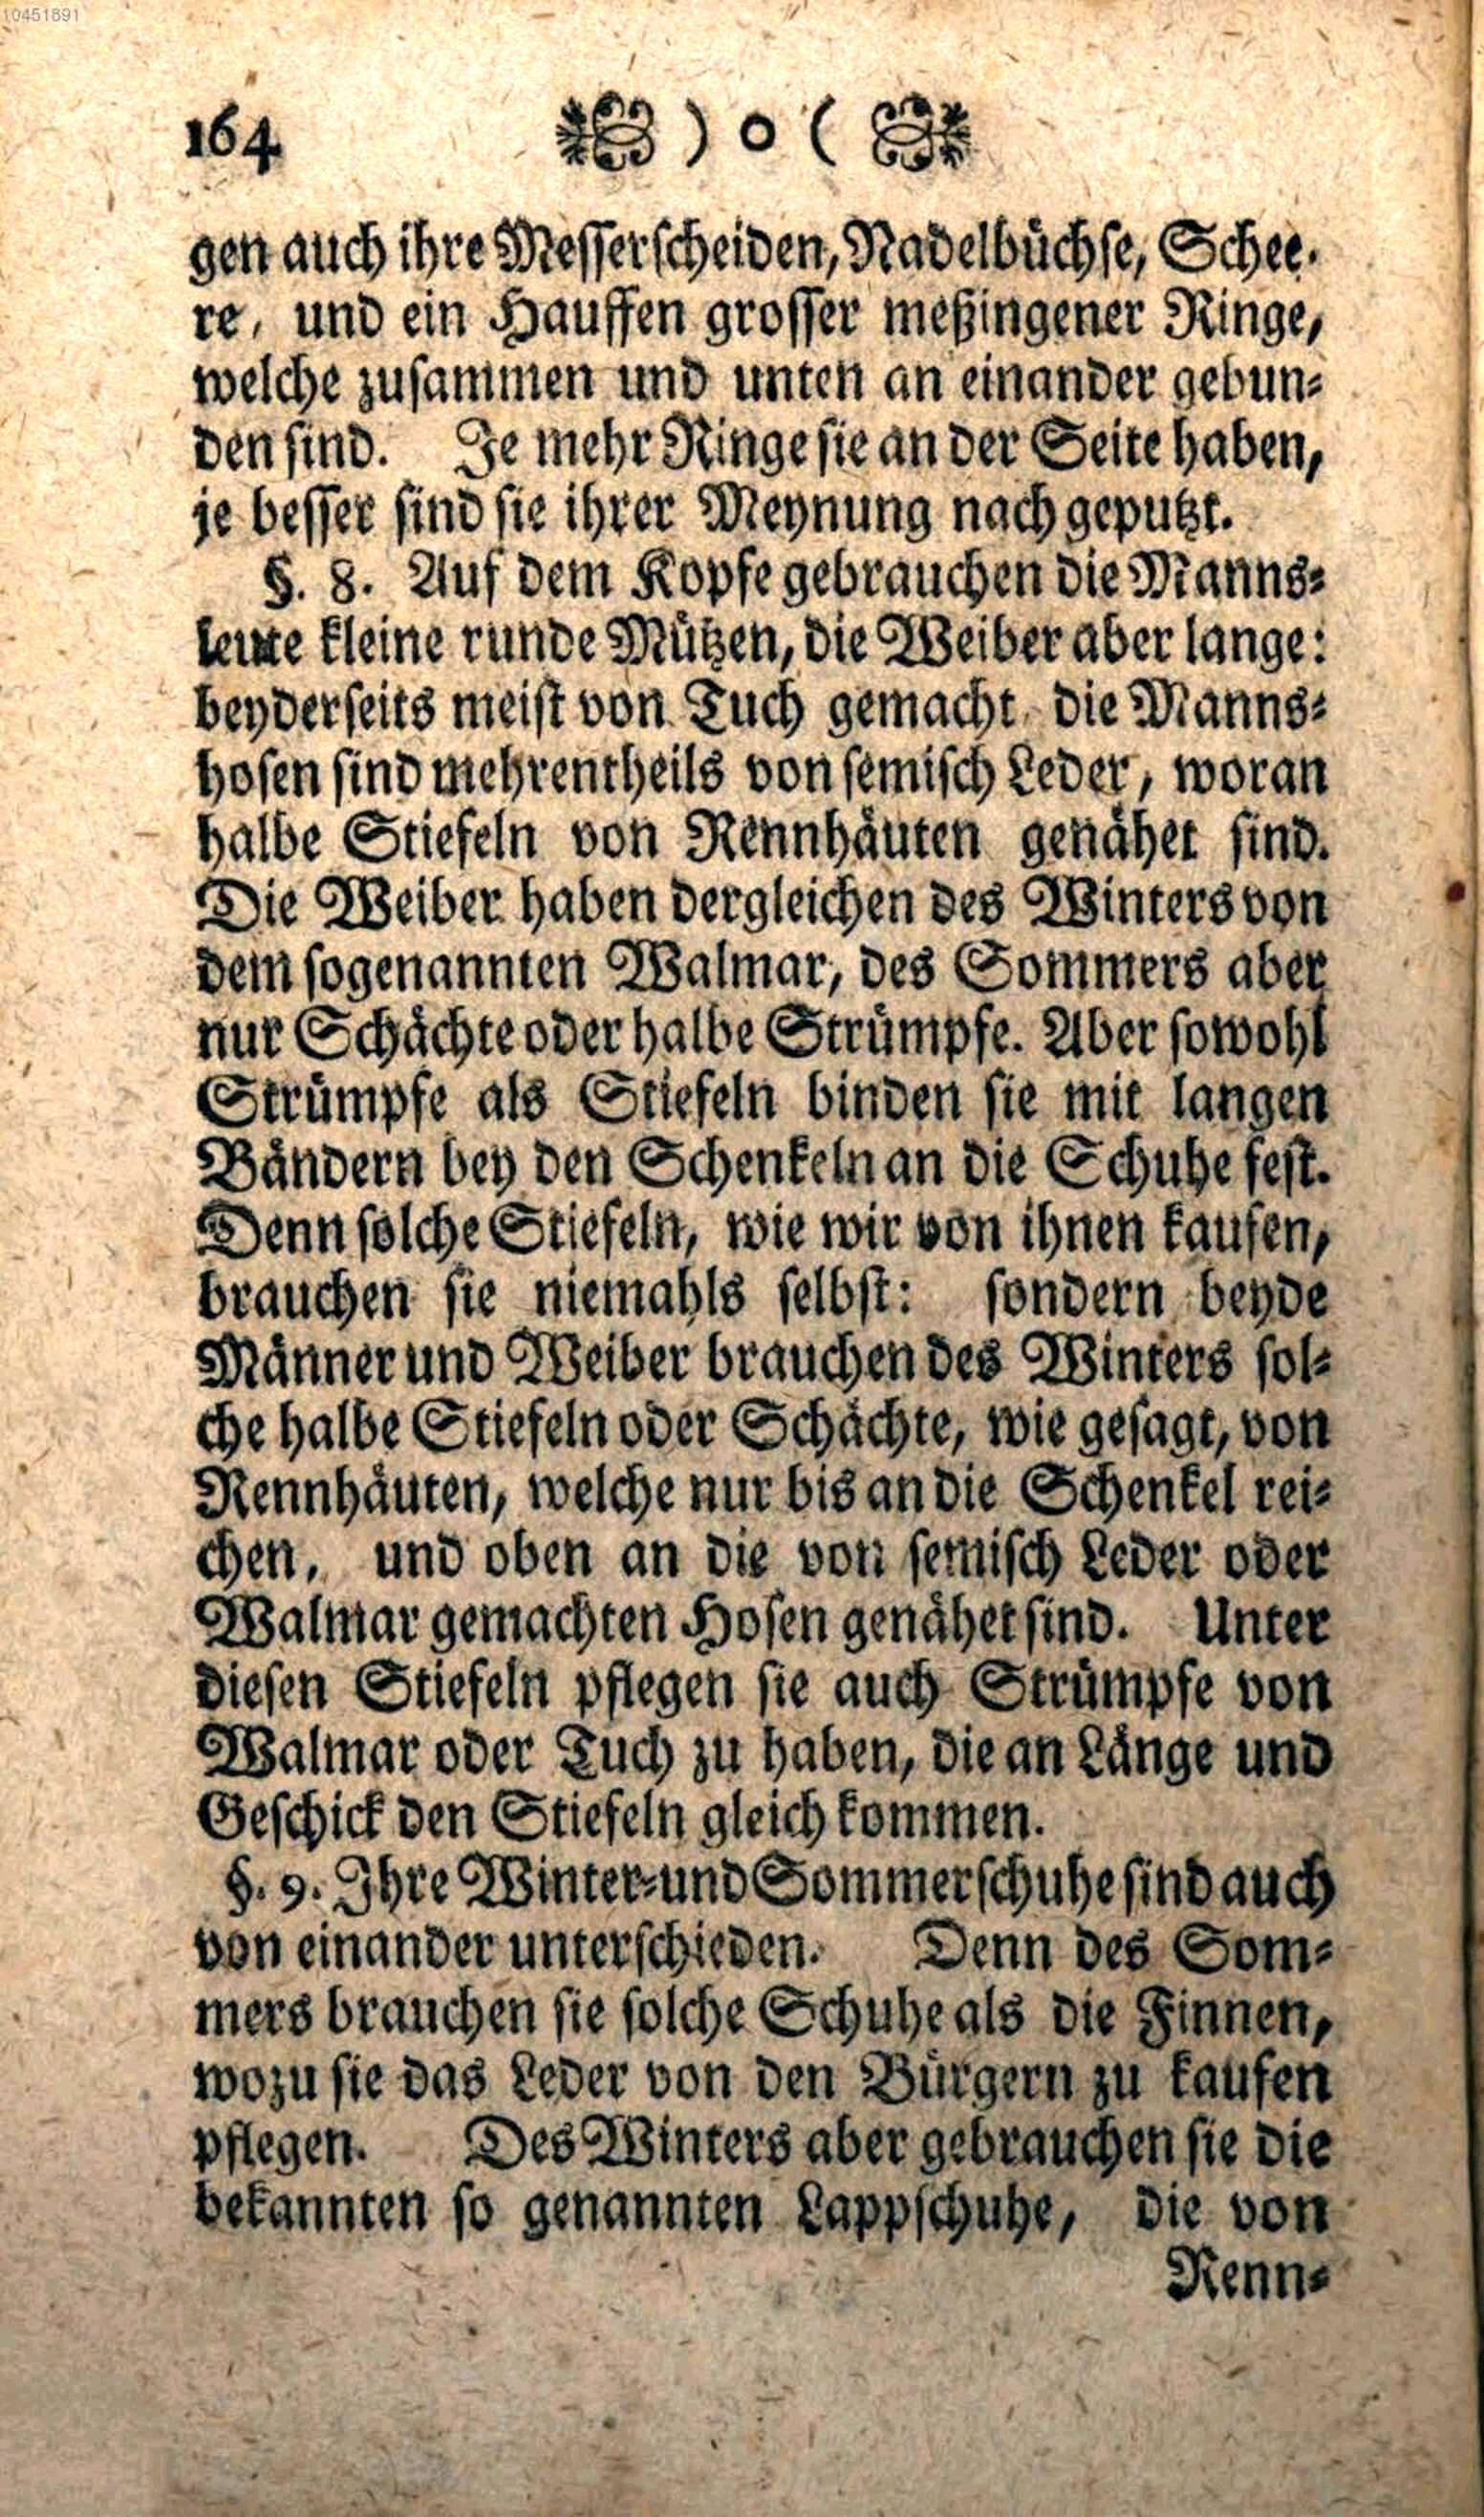 10451891
164 ) o (
gen auch ihre Messerscheiden, Nadelbüchse, Schee-
re, und ein Hauffen grosser meßingener Ringe,
welche zusammen und unten an einander gebun-
den sind. Je mehr Ringe sie an der Seite haben,
je besser sind sie ihrer Meynung nach geputzt.
§. 8. Auf dem Kopfe gebrauchen die Manns-
leute kleine runde Mützen, die Weiber aber lange:
beyderseits meist von Tuch gemacht, die Manns-
hosen sind mehrentheils von semisch Leder, woran
halbe Stiefeln von Rennhäuten genähet sind.
Die Weiber haben dergleichen des Winters von
dem sogenannten Walmar, des Sommers aber
nur Schächte oder halbe Strümpfe. Aber sowohl
Strümpfe als Stiefeln binden sie mit langen
Bändern bey den Schenkeln an die Schuhe fest.
Denn solche Stiefeln, wie wir von ihnen kaufen,
brauchen sie niemahls selbst: sondern beyde
Männer und Weiber brauchen des Winters sol-
che halbe Stiefeln oder Schächte, wie gesagt, von
Rennhäuten, welche nur bis an die Schenkel rei-
chen, und oben an die von semisch Leder oder
Walmar gemachten Hosen genähet sind. Unter
diesen Stiefeln pflegen sie auch Strümpfe von
Walmar oder Tuch zu haben, die an Länge und
Geschick den Stiefeln gleich kommen.
§. 9. Ihre Winter-und Sommerschuhe sind auch
von einander unterschieden. Denn des Som-
mers brauchen sie solche Schuhe als die Finnen,
wozu sie das Leder von den Bürgern zu kaufen
pflegen. Des Winters aber gebrauchen sie die
bekannten so genannten Lappschuhe, die von
Renn-